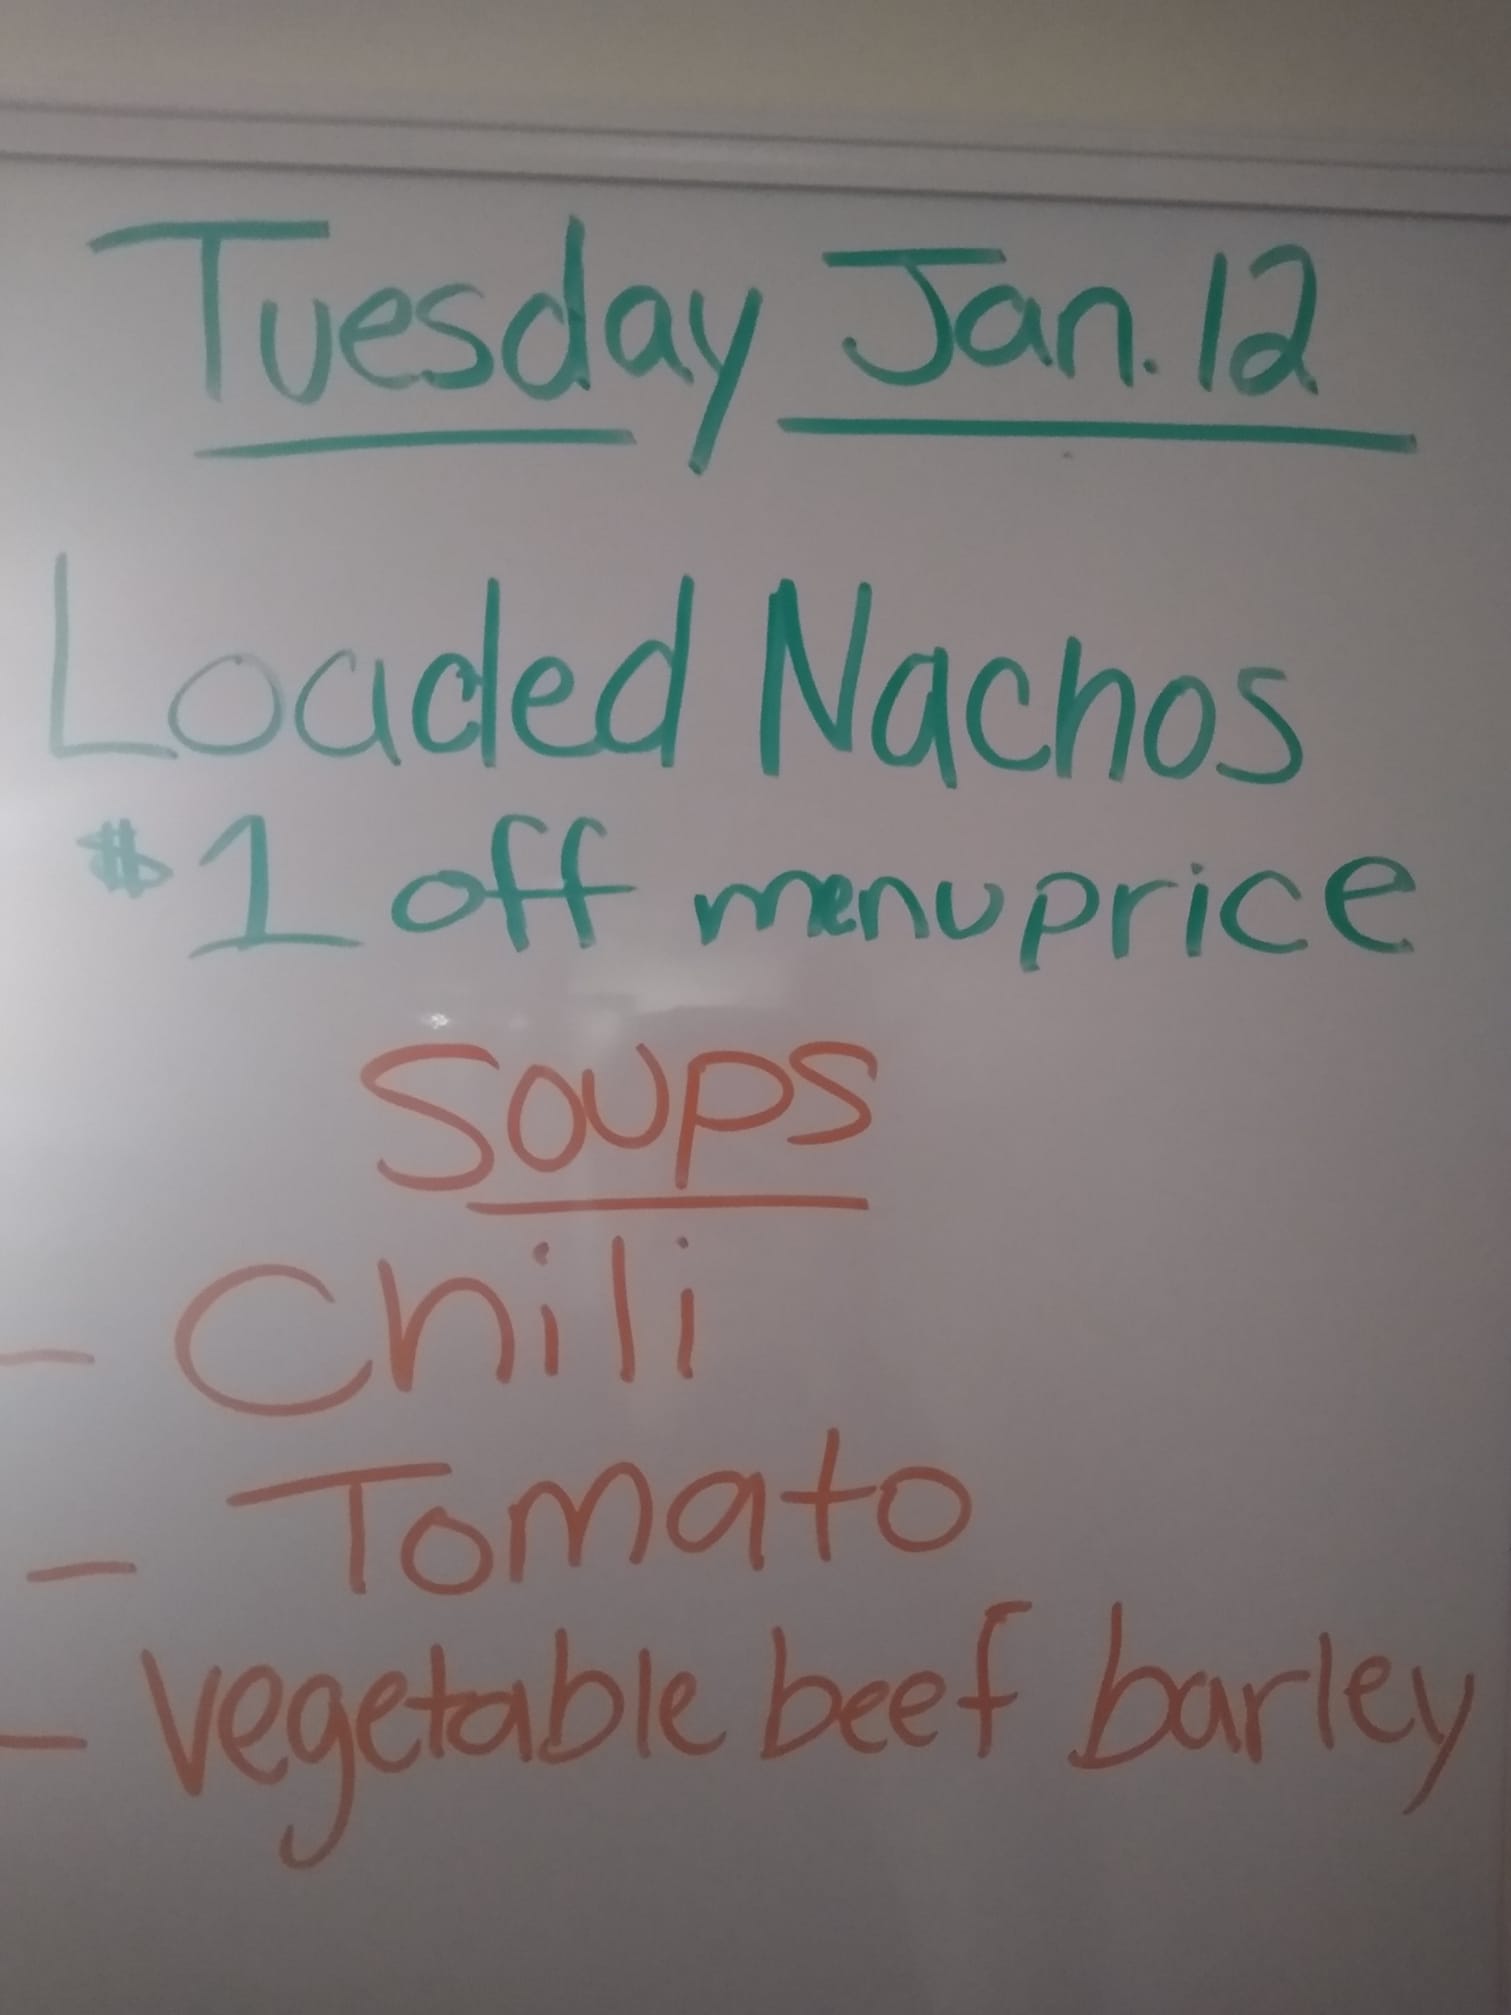 Tuesday Jan. 12
Loaded Nachos
$1 off menu price
Soups
- Chili
- Tomato
- Vegetable beef barley